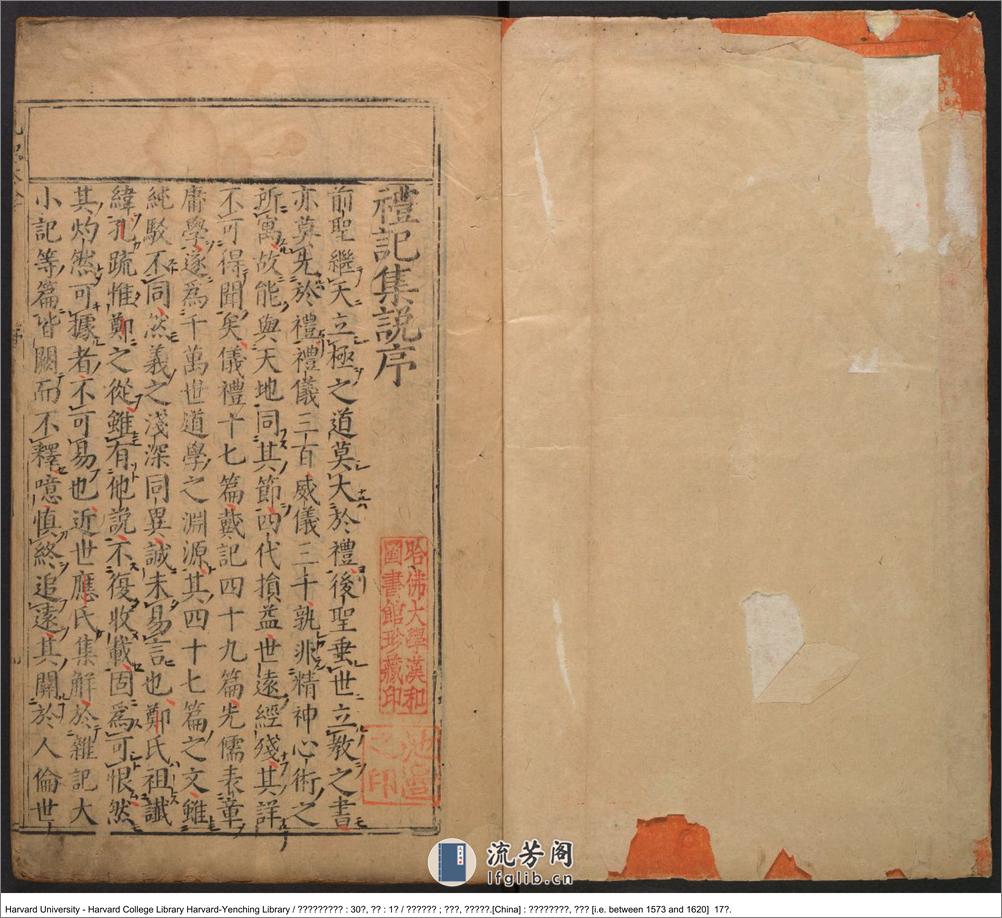 禮記集說序
前聖繼天立極之道莫大於禮後聖垂世立教之書
亦莫先於禮禮儀三百威儀三千孰非精神心術之
所寓故能與天地同其節四代損益世遠經殘其詳
不可得聞矣儀禮十七篇戴記四十九篇先儒表章
庸學遂爲千萬世道學之淵源其四十七篇之文雖
純駁不同然義之淺深同異誠未易言也鄭氏祖讖
緯孔疏惟鄭之從雖有他說不復收載固爲可恨然
其灼然可據者不可易也近世應氏集解於雜記大
小記等篇皆闕而不釋噫慎終追遠其關於人倫世
哈佛大學漢和
圖書館珍藏印
流芳阁
lfglib.cn
Harvard University - Harvard College Library Harvard-Yenching Library / ????????? : 30?, ?? : 1? / ?????? ; ???, ?????.[China] : ????????, ??? [i.e. between 1573 and 1620]  17?.